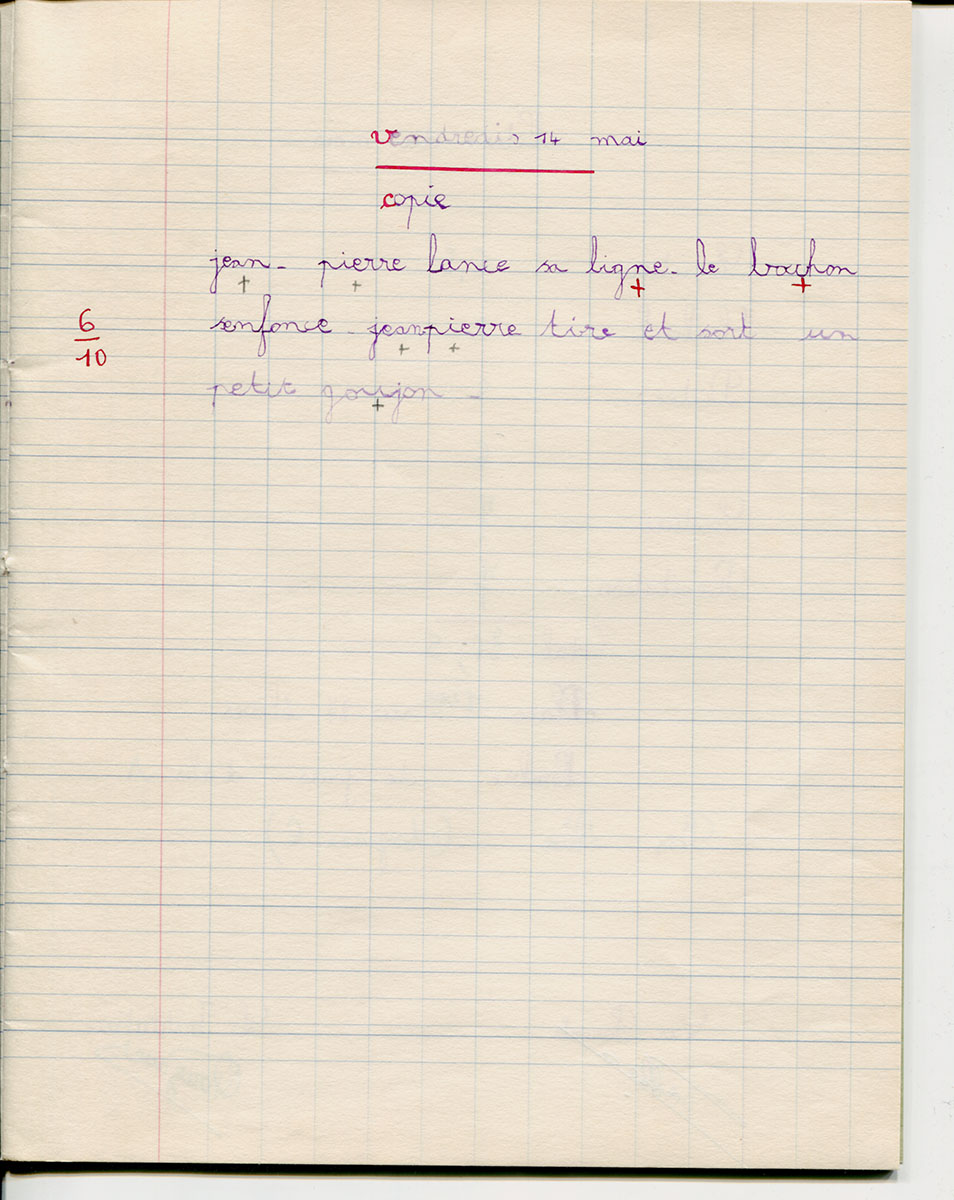 vendredi 14 mai
copie
jean - pierre lance sa ligne. le bouchon
senfonce - jeanpierre tire et sort un
petit goujon -
6
10